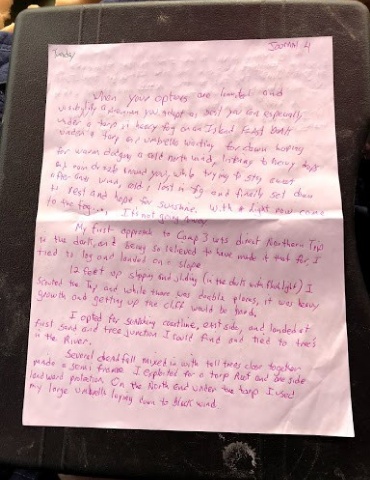 Sunday Journal 4
When your options are limited and
you adapt as best you can especially
under a tarp in heavy fog on an Island Forest
under a tarp and umbrella waiting for dawn hoping
for warm a cold north wind, listening to heavy
around you, while trying to stay
wind, cold, lost in fog and finally set down
to rest and hope for sunshine. With a Light
to the fog..., It's not going away
My first approach to Camp 3 was direct Northern Tip
in the dark, and being so relieved to have made it that far I
tied to log and landed on a slope
12 feet up slipping and sliding (in the dark with flashlight) I
Scouted the Top and while there was places, it was heavy
growth and getting up the cliff would be hard.
I opted for coastline, east side, and landed at
first sand and tree junction I could find and tied to trees
in the River.
Several deadfall mixed in with tall trees close together
made a semi frame I exploited for a tarp Roof and side
protection. On the North end under the tarp I used
my large umbrella laying down to block wind